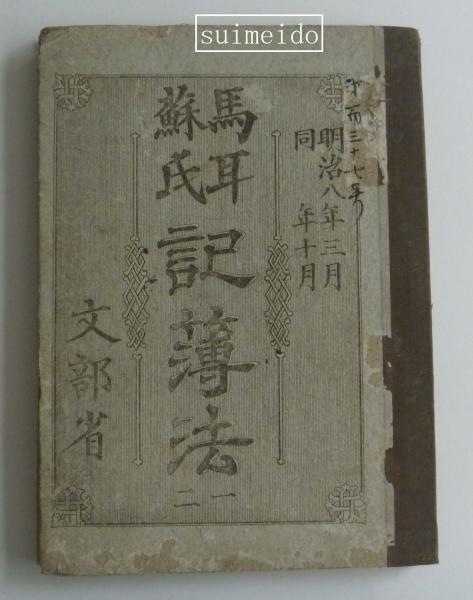 suimeido
第百三十七号
明治八年三月
同 年十月
馬耳
蘇氏
記簿法
一
二
文部省